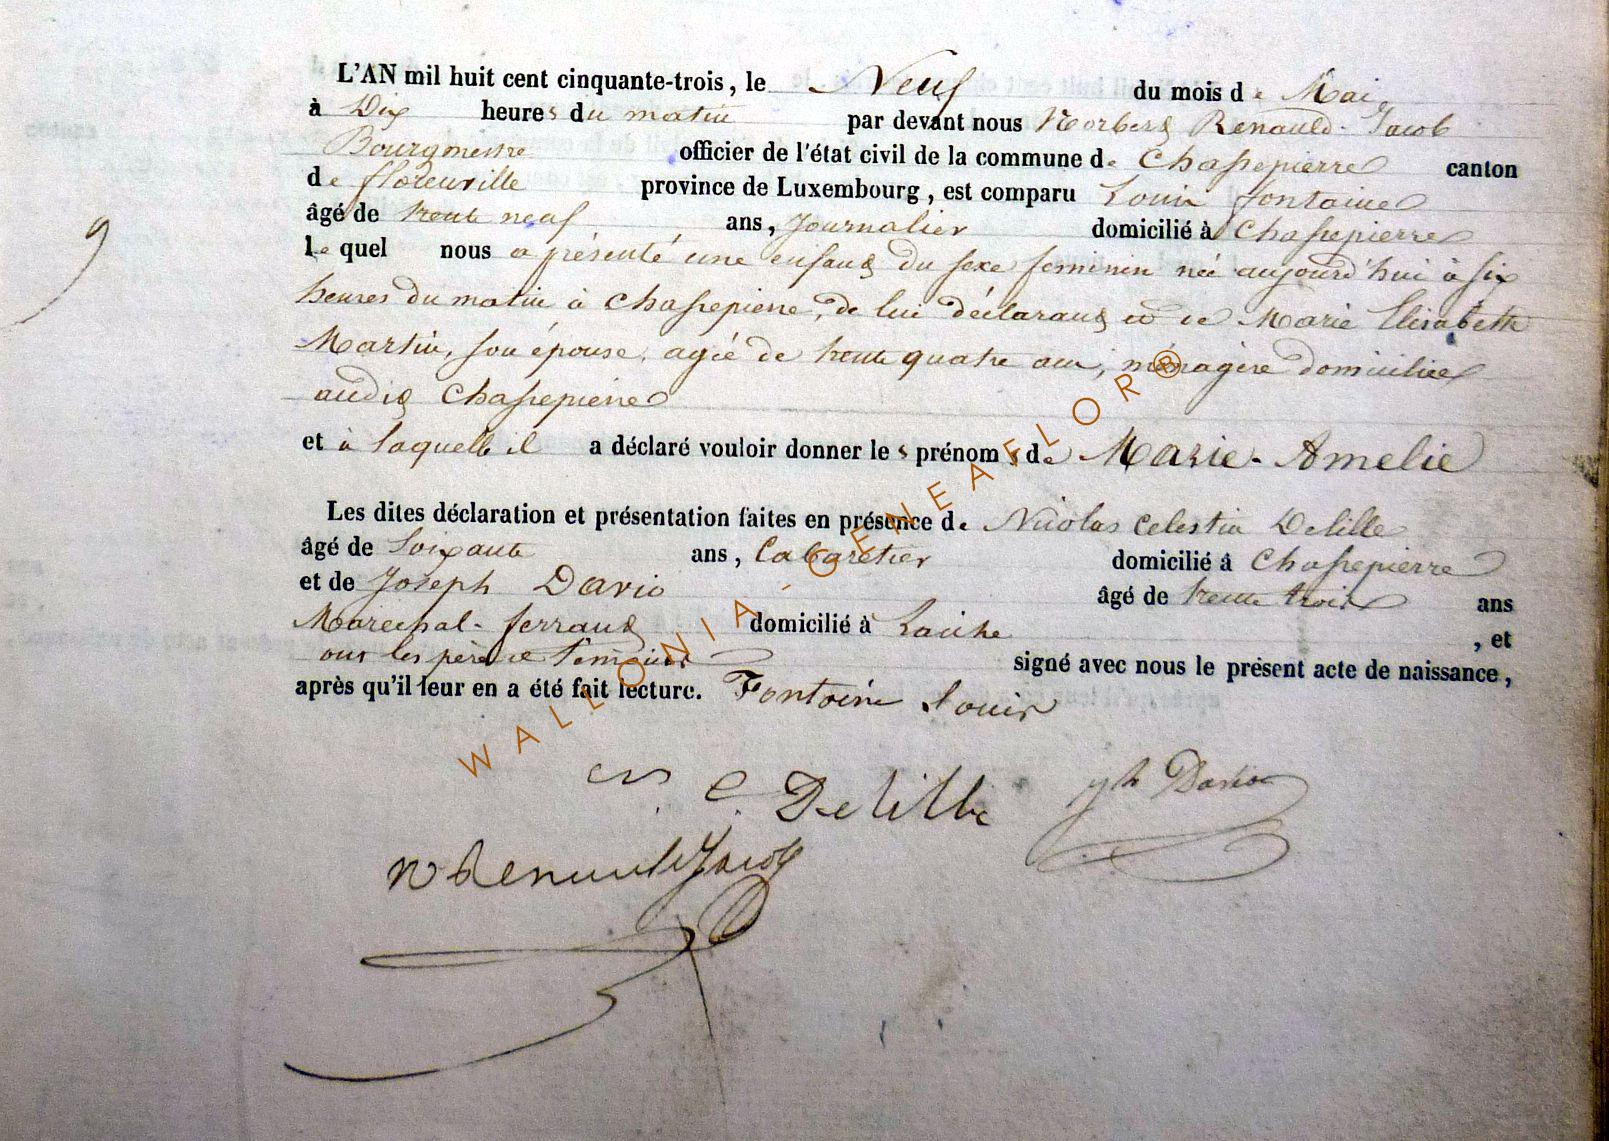 L'AN mil huit cent cinquante-trois, le Neuf du mois de Mai
à Dix heures du matin par devant nous Norbert Renauld-Jacob
Bourgmestre officier de l'état civil de la commune de Chassepierre canton
de florenville province de Luxembourg, est comparu Louis fontaine
âgé de trente neuf ans, journalier domicilié à Chassepierre
lequel nous a présenté une enfant du sexe feminin née aujourd'hui à six
heures du matin à Chassepierre, de lui déclarant et de Marie Elisabeth
Martin, son épouse, agée de trente quatre ans, ménagère domiciliée
audit Chassepierre
et à laquelle il a déclaré vouloir donner les prénoms de Marie-Amelie
Les dites déclaration et présentation faites en présence de Nicolas Celestin Delille
âgé de soixante ans, Cabaretier domicilié à Chassepierre
et de Joseph Dario âgé de trente trois ans
Marechal-ferrant domicilié à Laiche, et
ont les père et temoins signé avec nous le présent acte de naissance,
après qu'il leur en a été fait lecture. Fontaine Louis
n c Delille jh Dario
N Renauld Jacob
9
WALLONIA-GENEAFLOR®